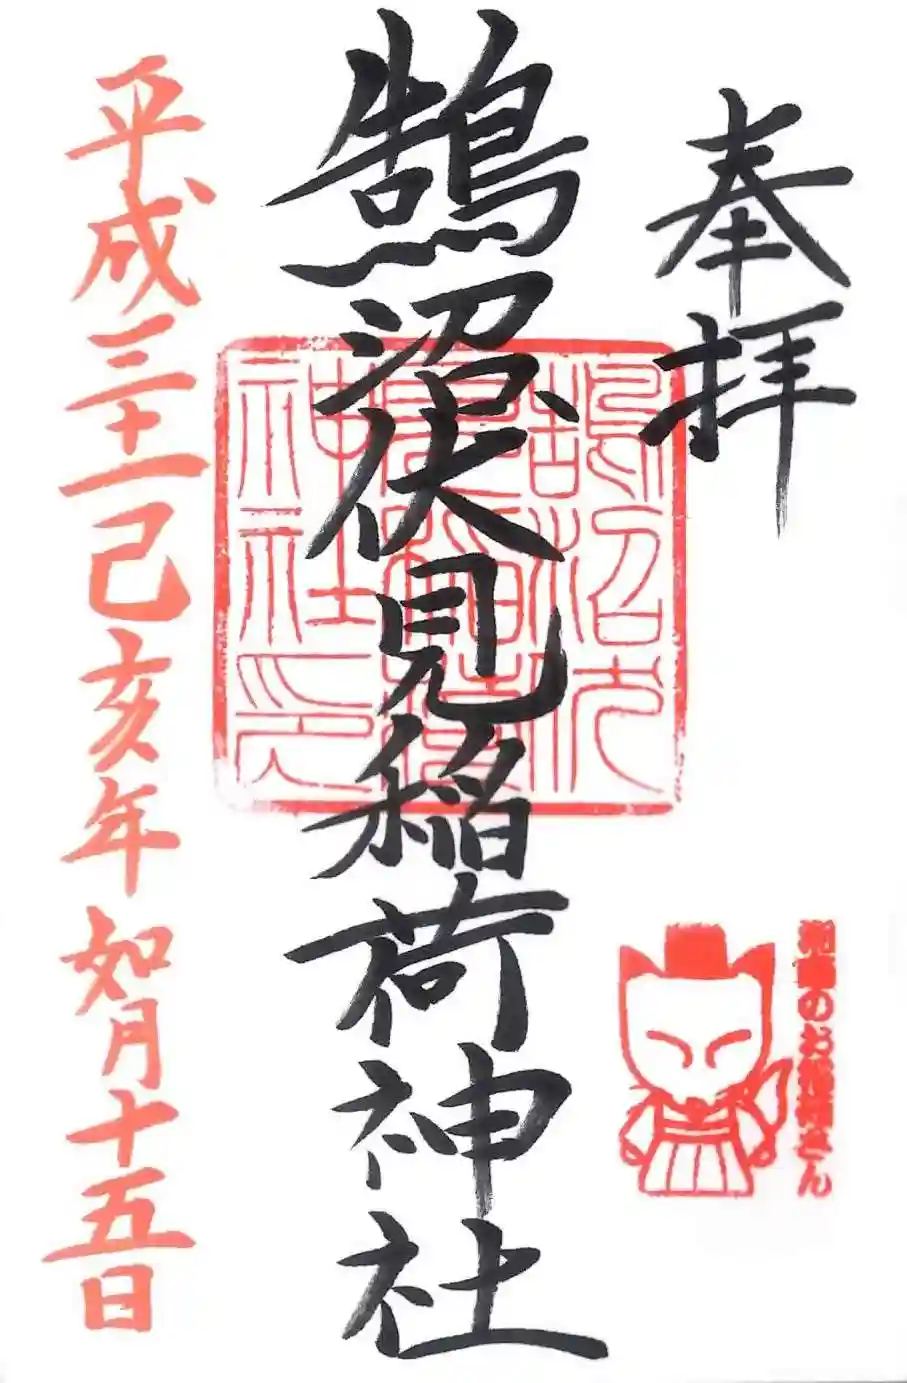 奉拝
鵠沼伏見稲荷神社
平成三十一己亥年如月十五日
鵠沼伏
見稲荷
神社印
湘南のお稲荷さん